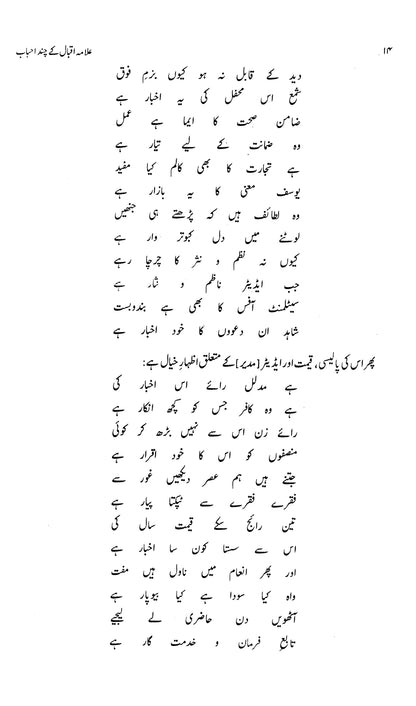 ۱۴ علامہ اقبال کے چند احباب
دید کے قابل نہ ہو کیوں بزمِ فوق
شمع اس محفل کی یہ اخبار ہے
ضامن صحت کا ایما ہے عمل
وہ ضمانت کے لیے تیار ہے
ہے تجارت کا بھی کالم کیا مفید
یوسف معنی کا یہ بازار ہے
وہ لطائف ہیں کہ پڑھتے ہی جنھیں
لوٹنے میں دل کبوتر وار ہے
کیوں نہ نظم و نثر کا چرچا رہے
جب ایڈیٹر ناظم و نثار ہے
سیٹلمنٹ آفس کا بھی ہے بندوبست
شاہد ان دعووں کا خود اخبار ہے
پھر اس کی پالیسی، قیمت اور ایڈیٹر [مدیر] کے متعلق اظہارِ خیال ہے:
ہے مدلل رائے اس اخبار کی
ہے وہ کافر جس کو کچھ انکار ہے
رائے زن اس سے نہیں بڑھ کر کوئی
منصفوں کو اس کا خود اقرار ہے
جتنے ہیں ہم عصر دیکھیں غور سے
فقرے فقرے سے ٹپکتا پیار ہے
تین رائج سکے قیمت سال کی
اس سے سستا کون سا اخبار ہے
اور پھر انعام میں ناول ہیں مفت
واہ کیا سودا ہے کیا بیوپار ہے
آٹھویں دن حاضری لے لیجیے
تابعِ فرمان و خدمت گار ہے